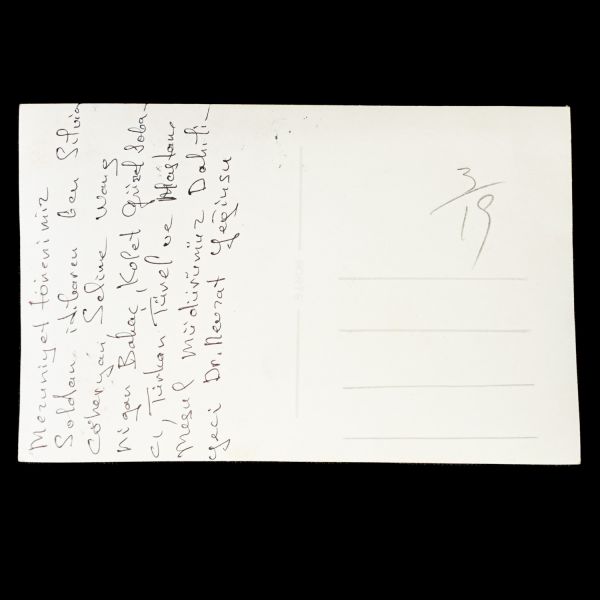 Mezuniyet törenimiz
Soldan itibaren ben Silvia
Coheryan, Selina Wang
Nigan Bahaç, Kolet Güzel Soba-
cı, Türkan Tünel ve Hastane
Mesul Müdürümüz Dahili-
yeci Dr. Nevzat Yeğinsu
3/19